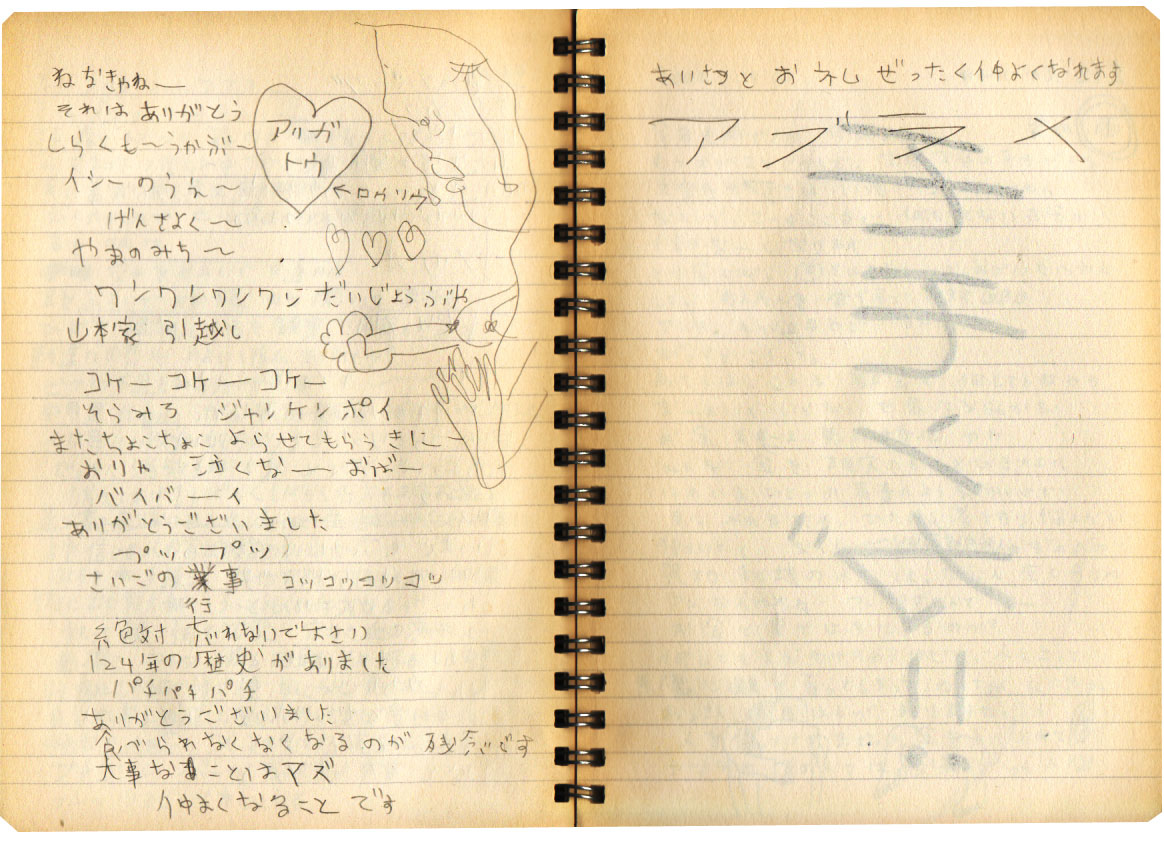 ねなきゃねー
それは ありがとう
しらくも〜うかぶ〜
イシーのうえ〜
げんきよく〜
やまのみち〜
ワンワンワンワン だいじょうぶや
山本家 引越し
コケー コケー コケー
そらみろ ジャンケンポイ
またちょこちょこ よらせてもらうきにー
おりゃ 泣くなー おばー
バイバーイ
ありがとうございました
プッ プッ
さいごの 事 コッコッコッコッ
行
絶対 忘れないで下さい
124年の 歴史がありました
パチパチパチ
ありがとうございました
食べられなくなくなるのが 残念です
大事なことはアズ
仲よくなること です
アリガ
トウ
←ロウソク
あいさつと おネム ぜったく仲よくなれます
アブラメ